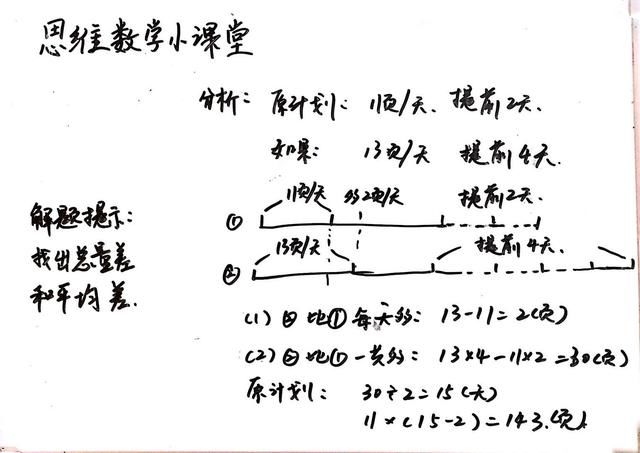 思维数学小课堂
分析: 原计划: 11页/天. 提前2天.
如果: 13页/天 提前4天.
11页/天 多2页/天 提前2天.
①
解题提示:
找出总量差
和平均差.
13页/天 提前4天.
②
(1) ②比①每天多: 13-11=2(页)
(2) ②比①一共多: 13×4-11×2=30(页)
原计划: 30÷2=15(天)
11×(15-2)=143.(页)